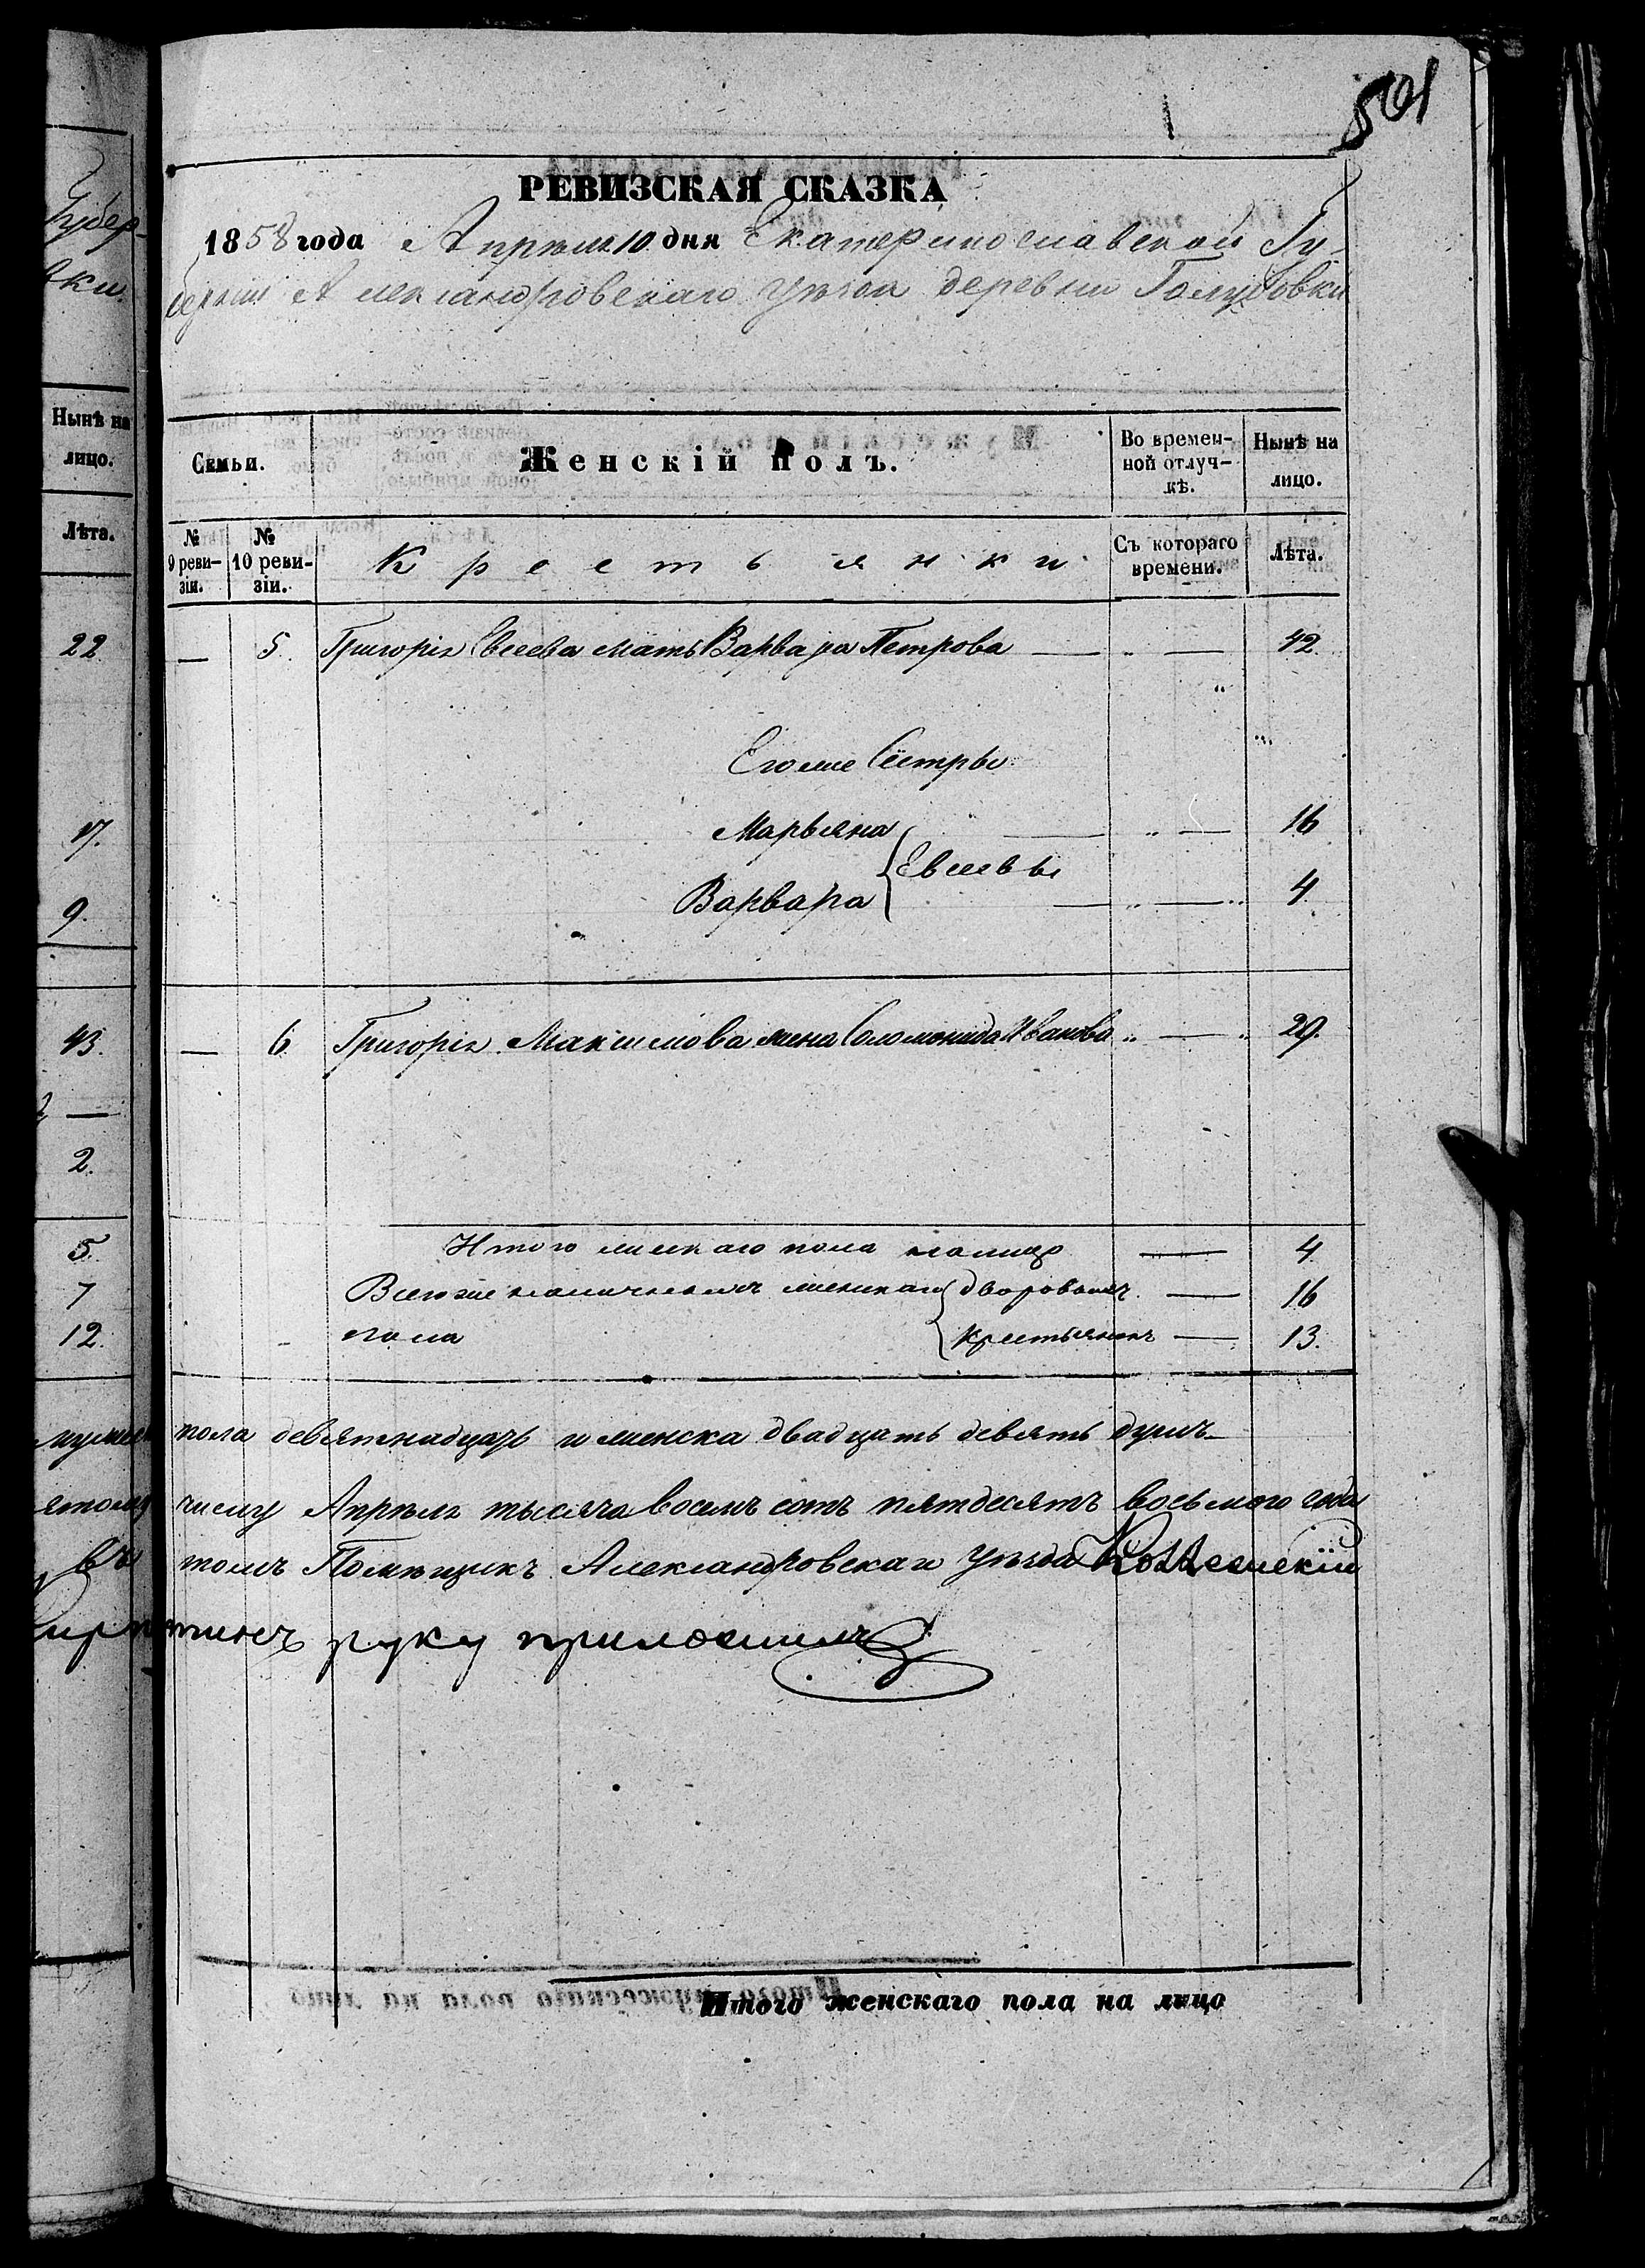 501
РЕВИЗСКАЯ СКАЗКА
1858 года Апрѣля 10 дня Екатеринославской Гу-
берніи Александровскаго уѣзда деревни Голубовки
Губер-
вки.
Нынѣ на лицо.
Лѣта.
Семьи.
Женскій полъ.
Во времен-
ной отлуч-
кѣ.
Нынѣ на
лицо.
№
9 реви-
зіи.
№
10 реви-
зіи.
Крестьянки
Съ котораго
времени.
Лѣта.
22. — 5. Григорія Евсеева мать Варвара Петрова — „ — 42.
Егоже Сестры
17. Марьяна — „ — 16
Евсеевы
9. Варвара — „ — 4
43. — 6. Григорія Максимова жена Соломонида Иванова „ — „ 29.
—
2.
5. Итого женскаго пола налицо — 4
7 Всегоже наличныхъ женскаго дворовыхъ — 16
12. пола крестьянокъ — 13.
пола девятнадцать и женска двадцать девять душъ
числу Апрѣля тысяча восемъ сотъ пятдесятъ восьмого года
въ томъ Помѣщикъ Александровскаго уѣзда
руку приложилъ
Итого женскаго пола на лицо